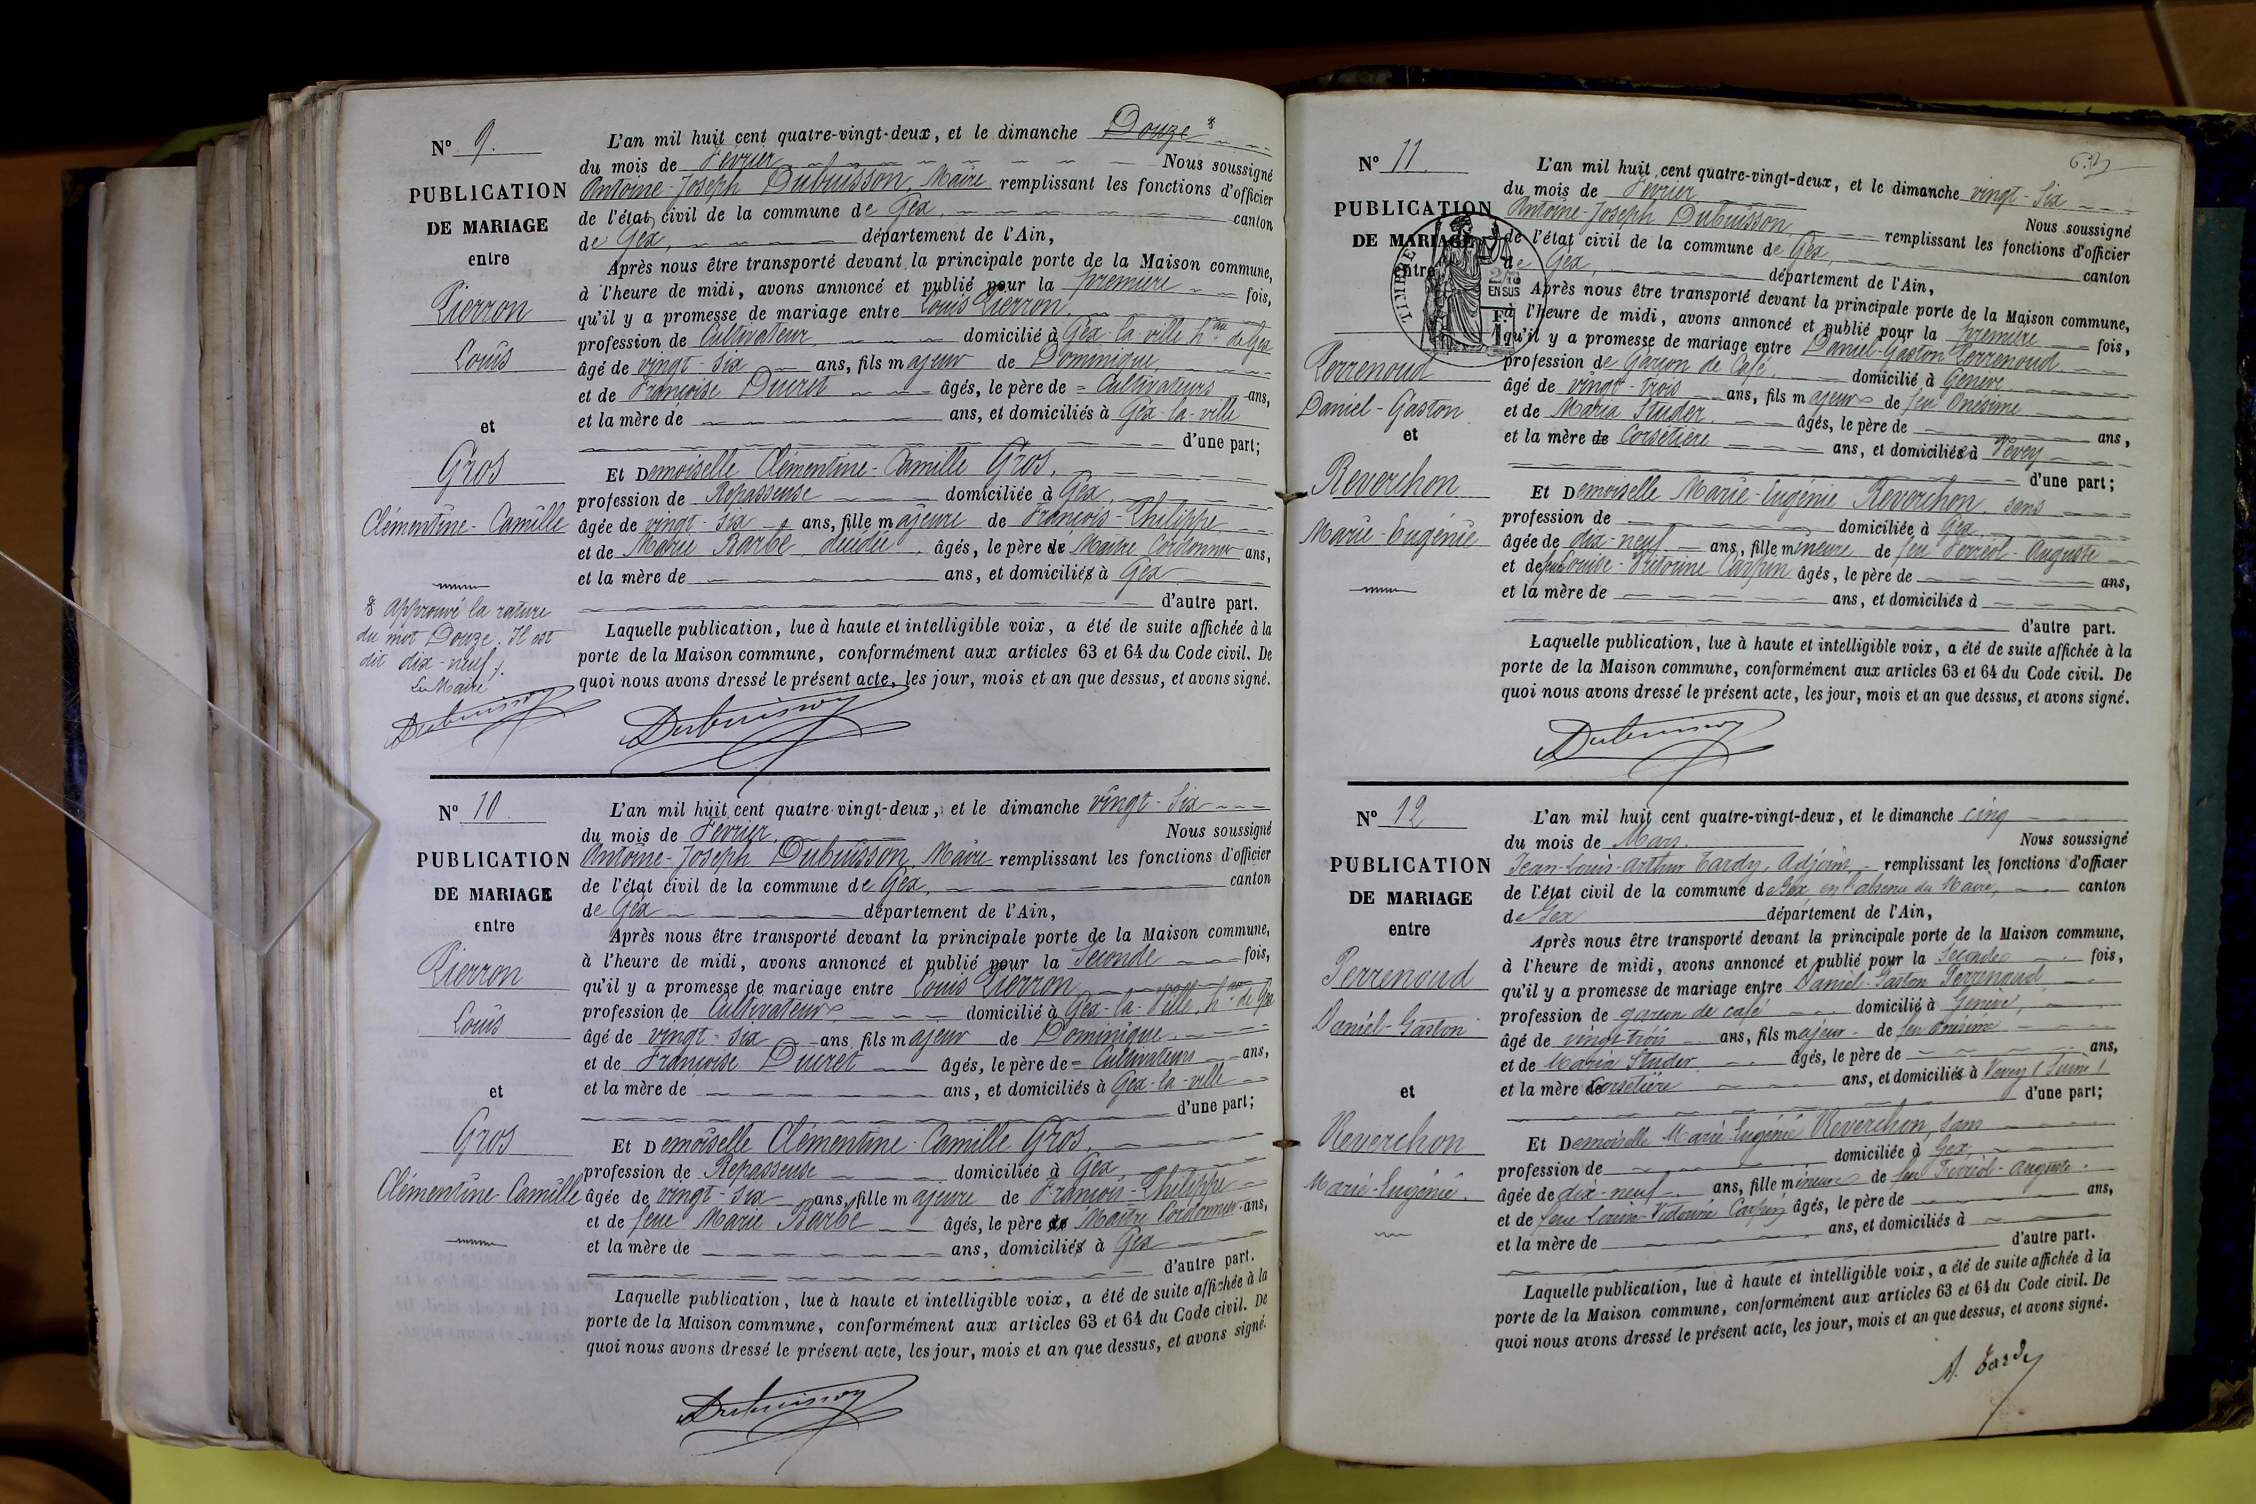 N° 9.
PUBLICATION
DE MARIAGE
entre
Pierron
Louis
et
Gros
Clémentine-Camille
Approuvé la rature
du mot Douze. Il est
dit dix-neuf.
Le Maire
Dubuisson
L'an mil huit cent quatre-vingt-deux, et le dimanche Douze
du mois de Février Nous soussigné
Antoine-Joseph Dubuisson, Maire remplissant les fonctions d'officier
de l'état civil de la commune de Gex, canton
de Gex, département de l'Ain,
Après nous être transporté devant la principale porte de la Maison commune,
à l'heure de midi, avons annoncé et publié pour la première fois,
qu'il y a promesse de mariage entre Louis Pierron,
profession de Cultivateur, domicilié à Gex-la-ville, h.au de Gex
âgé de vingt-six ans, fils majeur de Dominique,
et de Françoise Duret âgés, le père de = Cultivateurs ans,
et la mère de ans, et domiciliés à Gex-la-ville
d'une part;
Et Demoiselle Clémentine-Camille Gros,
profession de Repasseuse domiciliée à Gex,
âgée de vingt-six ans, fille majeure de François-Philippe
et de Marie Barbé décédée, âgés, le père de Maître Cordonnier ans,
et la mère de ans, et domiciliés à Gex
d'autre part.
Laquelle publication, lue à haute et intelligible voix, a été de suite affichée à la
porte de la Maison commune, conformément aux articles 63 et 64 du Code civil. De
quoi nous avons dressé le présent acte, les jour, mois et an que dessus, et avons signé.
Dubuisson
N° 10.
PUBLICATION
DE MARIAGE
entre
Pierron
Louis
et
Gros
Clémentine-Camille
L'an mil huit cent quatre-vingt-deux, et le dimanche vingt-six
du mois de Février, Nous soussigné
Antoine-Joseph Dubuisson, Maire remplissant les fonctions d'officier
de l'état civil de la commune de Gex, canton
de Gex département de l'Ain,
Après nous être transporté devant la principale porte de la Maison commune,
à l'heure de midi, avons annoncé et publié pour la Seconde fois,
qu'il y a promesse de mariage entre Louis Pierron,
profession de Cultivateur, domicilié à Gex-la-Ville, h.au de Gex
âgé de vingt-six ans, fils majeur de Dominique,
et de Françoise Duret âgés, le père de = Cultivateurs ans,
et la mère de ans, et domiciliés à Gex-la-ville
d'une part;
Et Demoiselle Clémentine-Camille Gros,
profession de Repasseuse domiciliée à Gex,
âgée de vingt-six ans, fille majeure de François-Philippe
et de feue Marie Barbé âgés, le père de Maître Cordonnier ans,
et la mère de ans, domiciliés à Gex
d'autre part.
Laquelle publication, lue à haute et intelligible voix, a été de suite affichée à la
porte de la Maison commune, conformément aux articles 63 et 64 du Code civil. De
quoi nous avons dressé le présent acte, les jour, mois et an que dessus, et avons signé.
Dubuisson
N° 11.
PUBLICATION
DE MARIAGE
entre
TIMBRE
2/10
EN SUS
Perrenoud
Daniel-Gaston
et
Reverchon
Marie-Eugénie
L'an mil huit cent quatre-vingt-deux, et le dimanche vingt-six
du mois de Février Nous soussigné
Antoine-Joseph Dubuisson remplissant les fonctions d'officier
de l'état civil de la commune de Gex, canton
de Gex, département de l'Ain,
Après nous être transporté devant la principale porte de la Maison commune,
à l'heure de midi, avons annoncé et publié pour la première fois,
qu'il y a promesse de mariage entre Daniel-Gaston Perrenoud
profession de Garçon de Café, domicilié à Genève
âgé de vingt-trois ans, fils majeur de feu Onésime
et de Maria Studer âgés, le père de ans,
et la mère de Corsetière ans, et domiciliés à Vevey
d'une part;
Et Demoiselle Marie-Eugénie Reverchon, sans
profession de domiciliée à Gex,
âgée de dix-neuf ans, fille mineure de feu Ferréol-Auguste
et de feue Louise-Victorine Carpin âgés, le père de ans,
et la mère de ans, et domiciliés à
d'autre part.
Laquelle publication, lue à haute et intelligible voix, a été de suite affichée à la
porte de la Maison commune, conformément aux articles 63 et 64 du Code civil. De
quoi nous avons dressé le présent acte, les jour, mois et an que dessus, et avons signé.
Dubuisson
N° 12
PUBLICATION
DE MARIAGE
entre
Perrenoud
Daniel-Gaston
et
Reverchon
Marie-Eugénie.
L'an mil huit cent quatre-vingt-deux, et le dimanche cinq
du mois de Mars. Nous soussigné
Jean-Louis-Arthur Tardy, Adjoint remplissant les fonctions d'officier
de l'état civil de la commune de Gex en l'absence du Maire, canton
de Gex département de l'Ain,
Après nous être transporté devant la principale porte de la Maison commune,
à l'heure de midi, avons annoncé et publié pour la Seconde fois,
qu'il y a promesse de mariage entre Daniel-Gaston Perrenoud
profession de garçon de café domicilié à Genève,
âgé de vingt-trois ans, fils majeur de feu Onésime
et de Maria Studer âgés, le père de ans,
et la mère de Corsetière ans, et domiciliés à Vevey (Suisse)
d'une part;
Et Demoiselle Marie-Eugénie Reverchon, sans
profession de domiciliée à Gex,
âgée de dix-neuf ans, fille mineure de feu Ferréol-Auguste.
et de feue Louise-Victorine Carpin âgés, le père de ans,
et la mère de ans, et domiciliés à
d'autre part.
Laquelle publication, lue à haute et intelligible voix, a été de suite affichée à la
porte de la Maison commune, conformément aux articles 63 et 64 du Code civil. De
quoi nous avons dressé le présent acte, les jour, mois et an que dessus, et avons signé.
A. Tardy